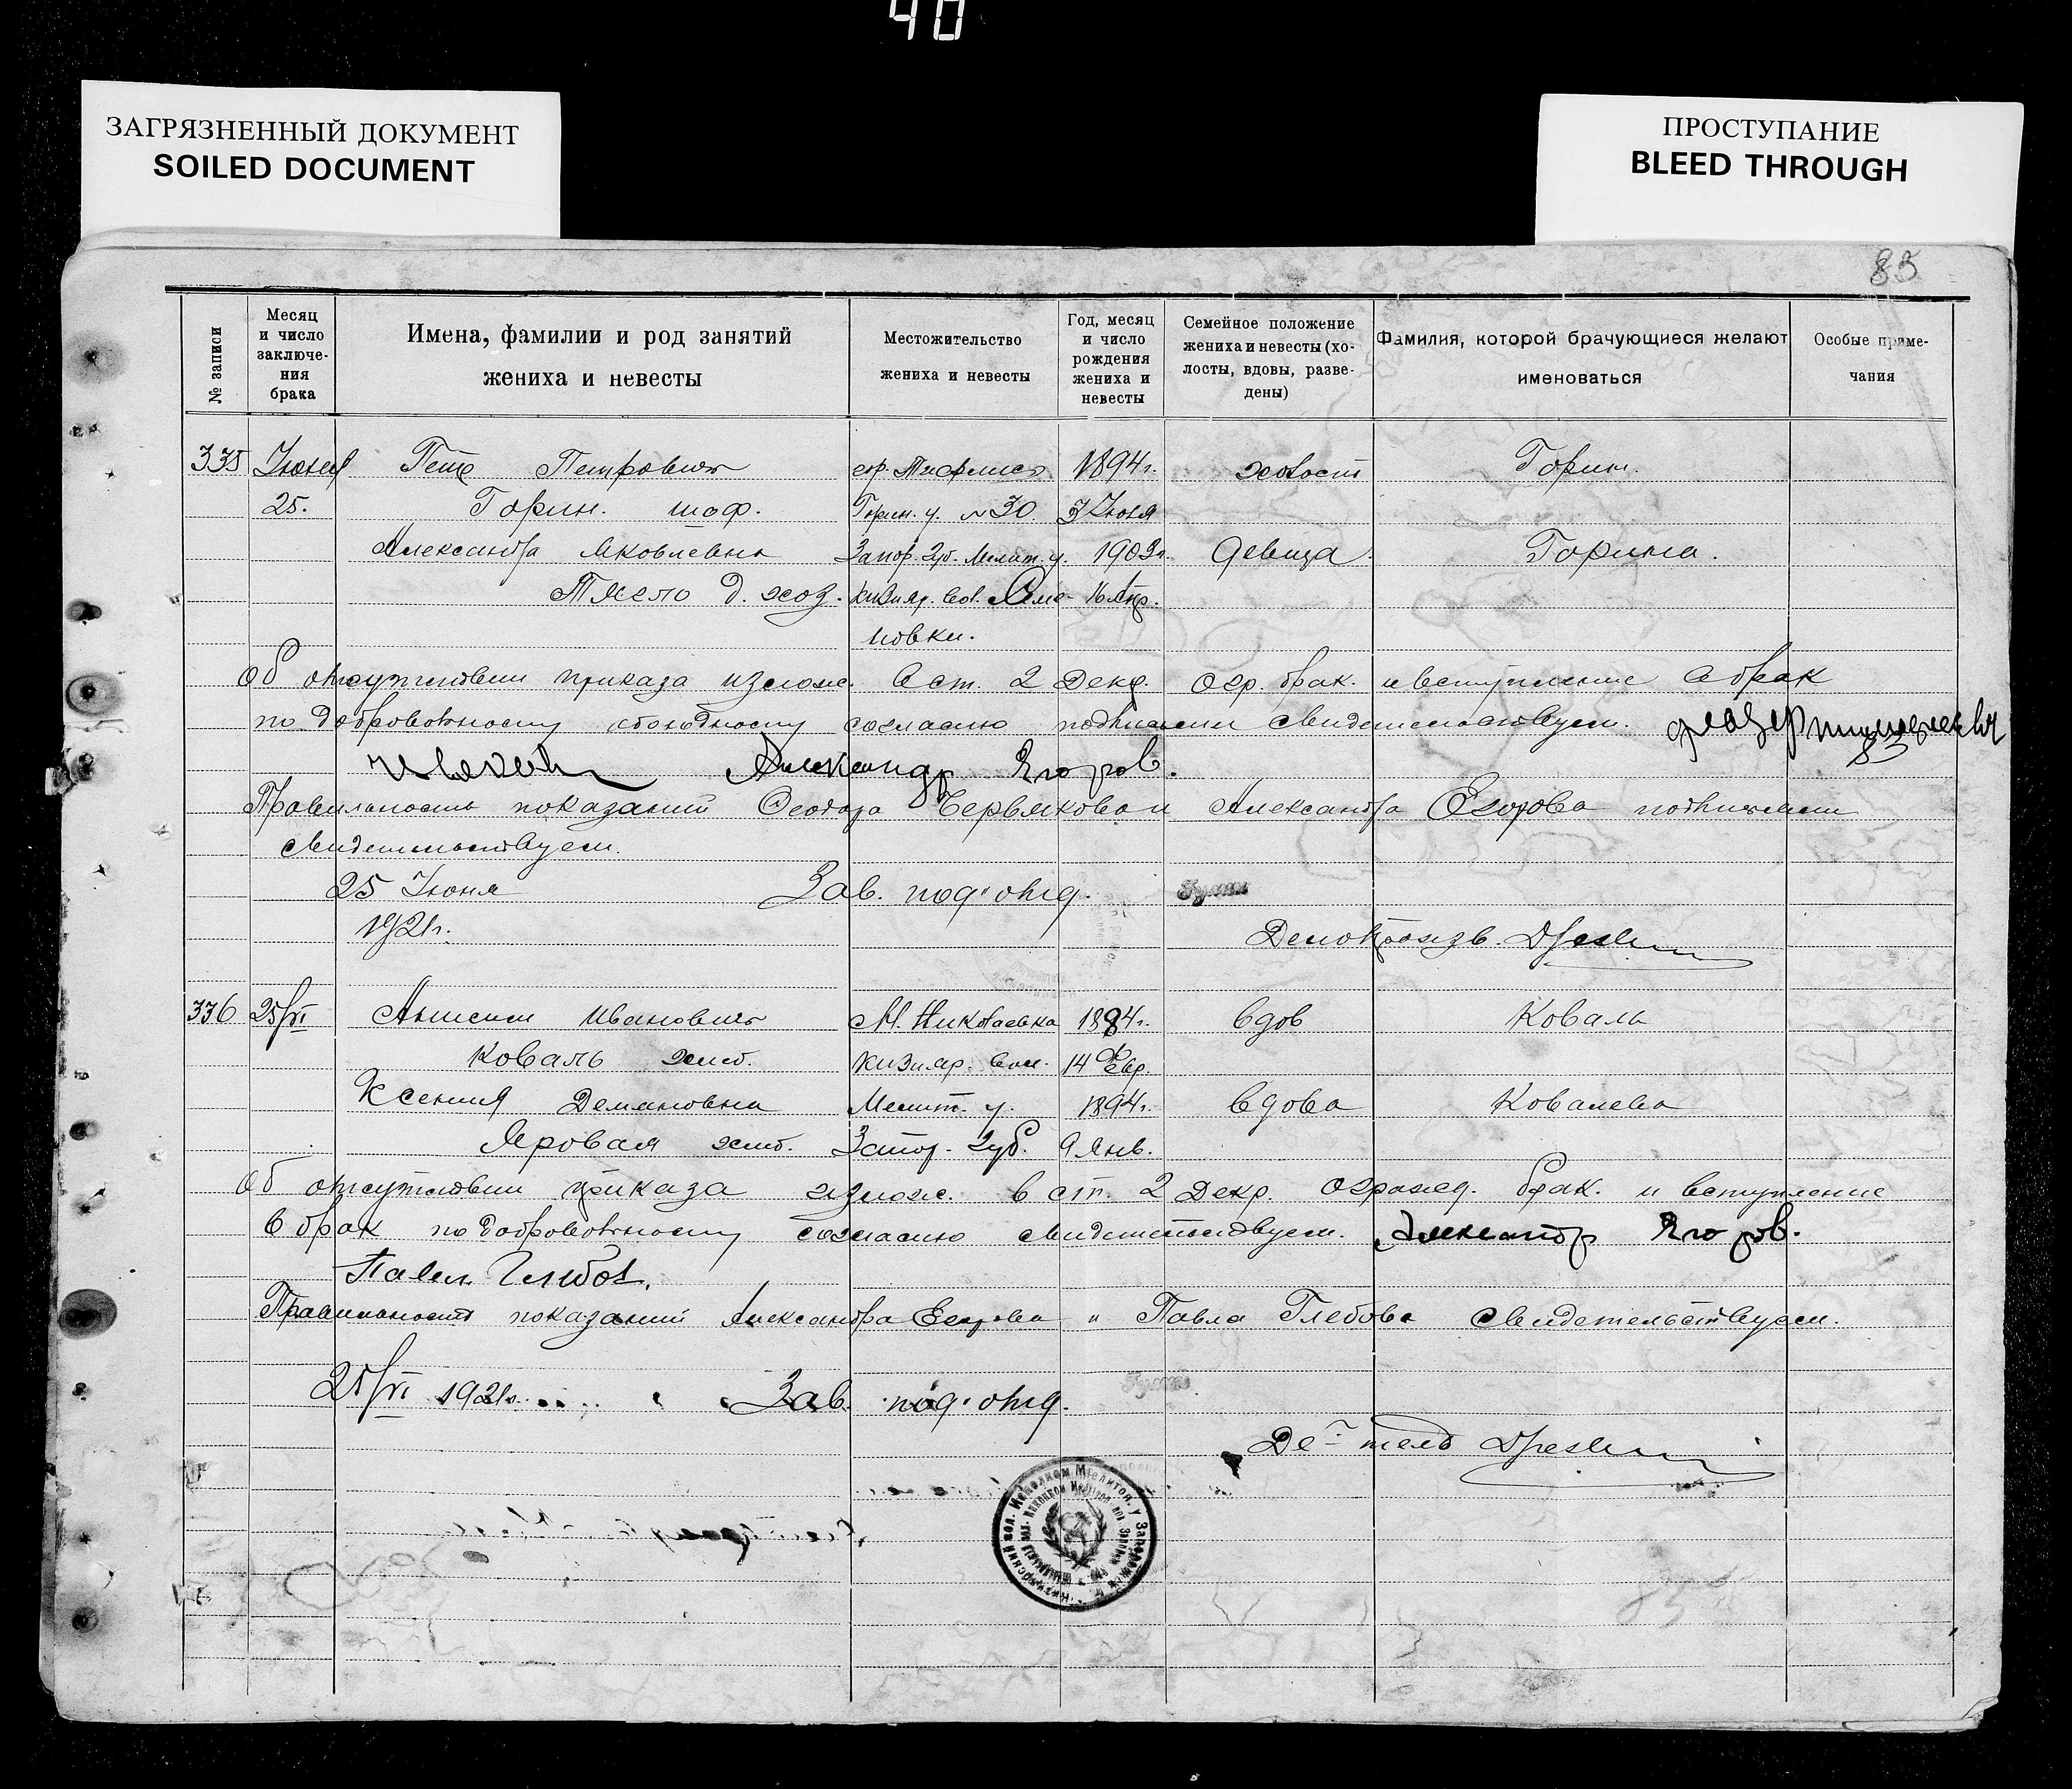 40
ЗАГРЯЗНЕННЫЙ ДОКУМЕНТ
SOILED DOCUMENT
ПРОСТУПАНИЕ
BLEED THROUGH
85
№ записи
Месяц и число заключе-ния брака
Имена, фамилии и род занятий жениха и невесты
Местожительство жениха и невесты
Год, месяц и число рождения жениха и невесты
Семейное положение жениха и невесты (хо-лосты, вдовы, разве-дены)
Фамилия, которой брачующиеся желают именоваться
Особые приме-чания
335 Июня Петр Петрович гор. Тифлис 1894 г. холост Горин.
25. Горин. шоф. Горин. у. № 30 3 Июля
Александра Яковлевна Запор. Губ. Мелит. у. 1903 г. девица Горина.
Тяело д. хоз. Кизияр. вол. Семе- 16 Апр.
новки.
Об отсутствии приказа излож. в ст. 2 Декр. огр. брак. и вступление в брак
по добровольному свободному согласию подписями свидетельствуем.
Александр Ягоров.
Правильность показаний Феодора Червякова и Александра Егорова подписями
свидетельствуем.
25 Июня Зав. под. отд.
1921 г.
Делопроизв.
336 25/VI Анисим Иванович М. Николаевка 1884 г. вдов Коваль
Коваль хлеб. Кизияр. вол. 14 Февр.
Ксения Демановна Мелит. у. 1894 г. вдова Ковалева
Яровая хлеб. Запор. Губ. 9 Янв.
Об отсутствии приказа излож. в ст. 2 Декр. огражд. брак. и вступление
в брак по добровольному согласию свидетельствуем. Александр Ягоров.
Павел Глибов.
Правильность показаний Александра Егорова и Павла Глебова свидетельствуем.
25/VI 1921 г. Зав. под. отд.
Де-тель